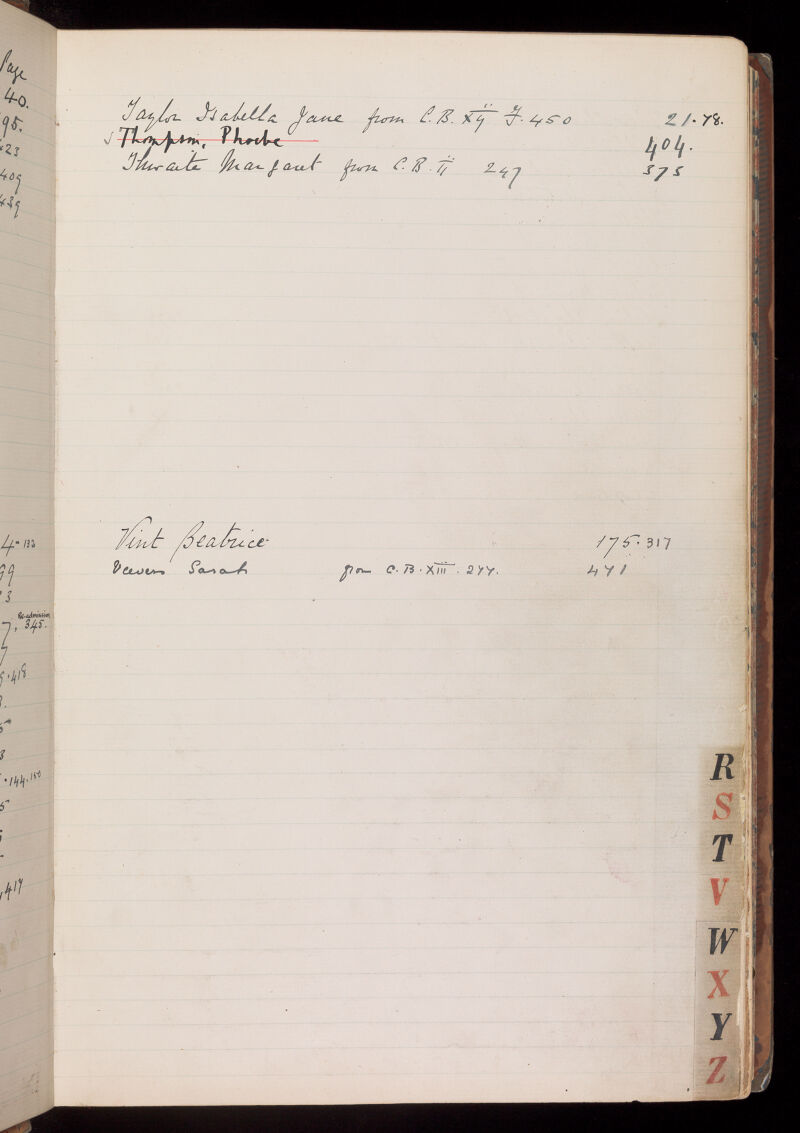 Page
40.
95.
423
409
439
Taylor Isabella Jane from C.B. XII F. 450 21.78.
Thompson, Phoebe 404.
Thwaite Margaret from C.B. II 247 375
Vint Beatrice 175.317
Veevers Sarah from C.B. XIII. 277. 471
4-133
99
3
Re-admission
7, 345.
7
9.418
5
8
.144.150
5
,417
R
S
T
V
W
X
Y
Z